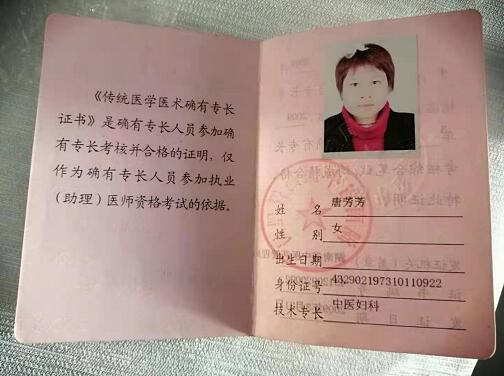 《传统医学医术确有专长
证书》是确有专长人员参加确
有专长考核并合格的证明，仅
作为确有专长人员参加执业
（助理）医师资格考试的依据。
姓 名 唐芳芳
性 别 女
出生日期
身份证号 432902197310110922
技术专长 中医妇科